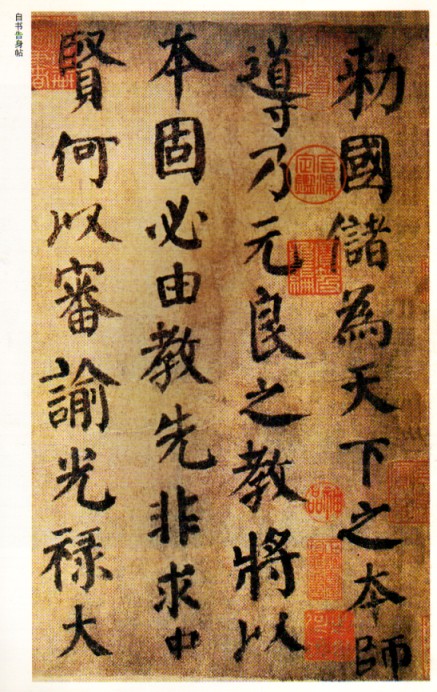 自书告身帖
勑國儲為天下之本師
導乃元良之教將以
本固必由教先非求忠
賢何以審諭光祿大
神品